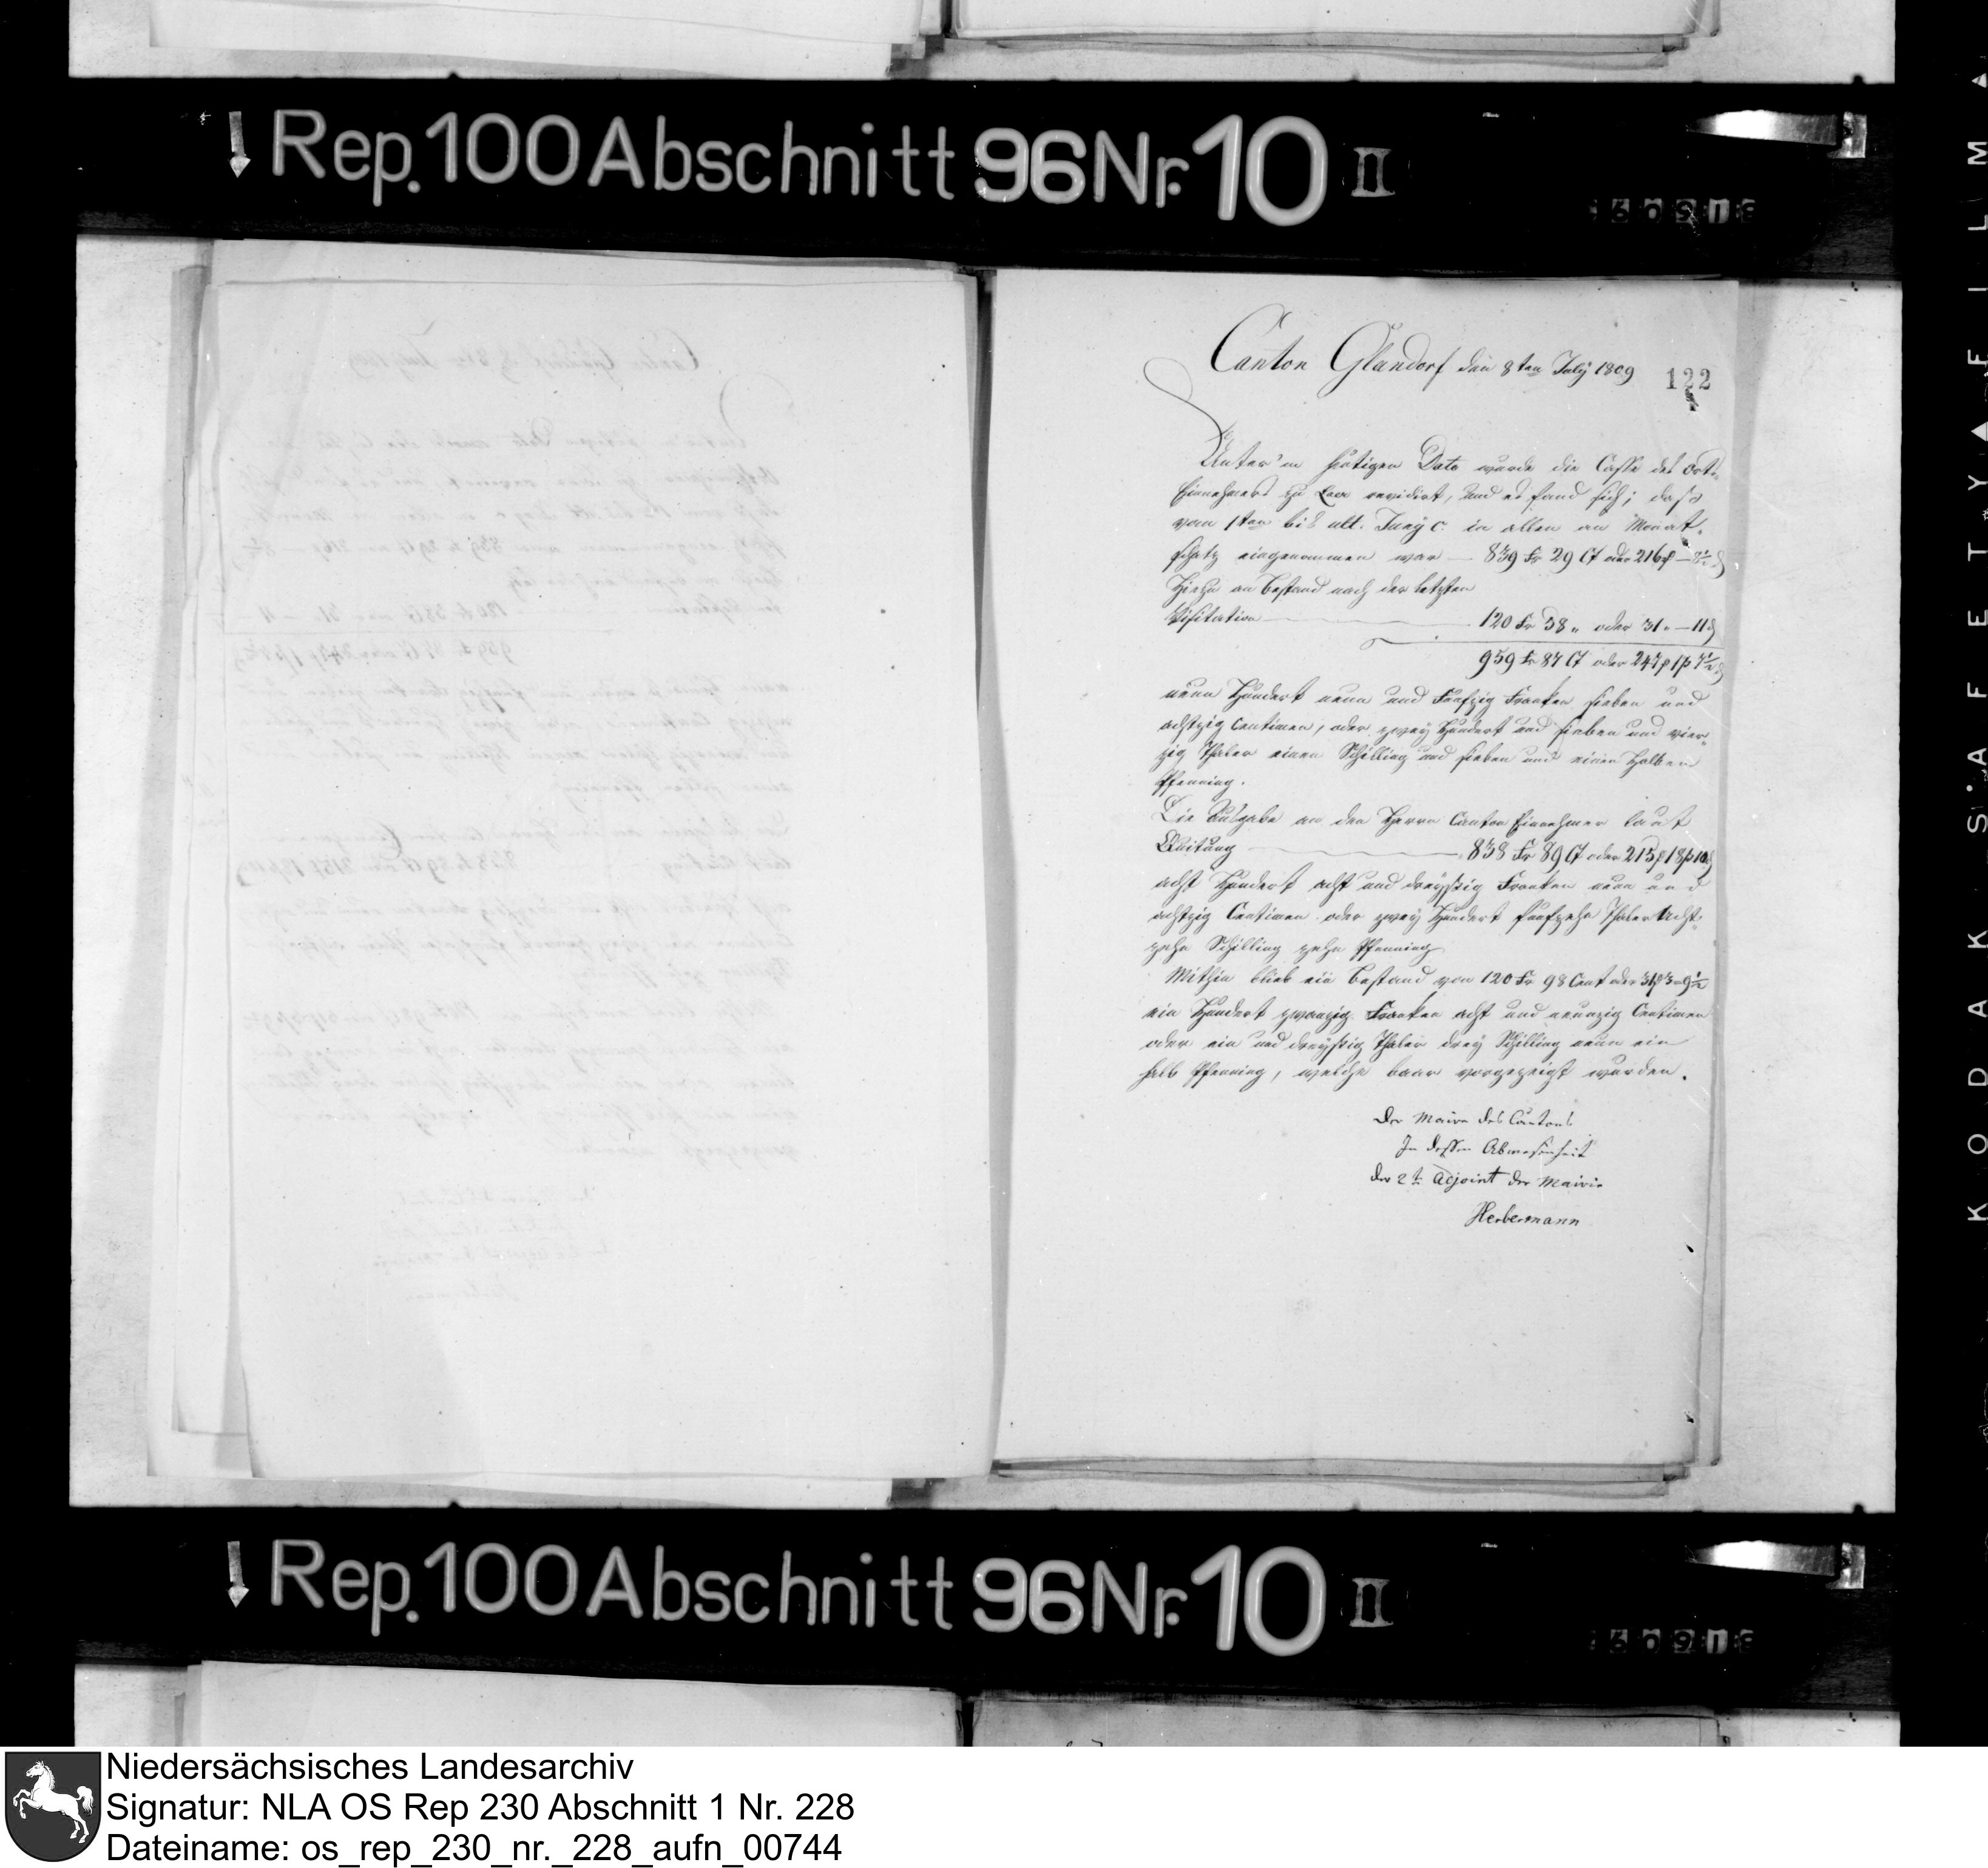 Rep. 100 Abschnitt 96 Nr. 10 II
Canton Glandorf den 8ten July 1809
122
Unter'm heutigen Dato wurde die Casse des Orts-
Einnehmers zu Laer revidirt, und es fand sich; dass
vom 1ten bis ult. Juny c. in allen an Monat-
schatz eingenommen war — 839 Fr 29 Ct oder 216
Hiezu an Bestand nach der letzten
Visitation 120 Fr 58 „ oder 31 „ — 11
959 Fr 87 Ct oder 247 1 7½
neun Hundert neun und Fünfzig Franken sieben und
achtzig Centimen, oder zwey Hundert und sieben und vier-
zig Thaler einen Schilling und sieben und einen halben
Pfenning.
Die Ausgabe an den Herrn Canton Einnehmer laut
Quitung 838 Fr 89 Ct oder 215 18 10
acht Hundert acht und dreyßig Franken neun und
achtzig Centimen oder zwey Hundert fünfzehn Thaler Acht-
zehn Schilling zehn Pfenning
Mithin blieb ein Bestand von 120 Fr 98 Cent oder 31 3 9½
ein Hundert zwanzig Franken acht und neunzig Centimen
oder ein und dreyßig Thaler drey Schilling neun ein
halb Pfenning, welche baar vorgezeigt wurden.
Der Maire des Cantons
In dessen Abwesenheit
der 2te Adjoint der Mairie
Herbermann
Rep. 100 Abschnitt 96 Nr. 10 II
KODAK SAFETY FILM
Niedersächsisches Landesarchiv
Signatur: NLA OS Rep 230 Abschnitt 1 Nr. 228
Dateiname: os_rep_230_nr._228_aufn_00744